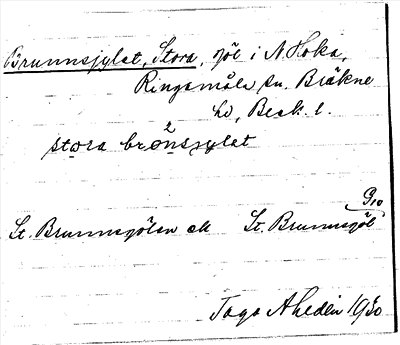 Brunnsjylet, Stora, göl i N. Hoka,
Ringamåla sn. Bräkne
hd, Blek. l.
stora brönsjylet
G10
St. Brunnsgölen ek St. Brunnsgöl
Tage Ahedin 1930